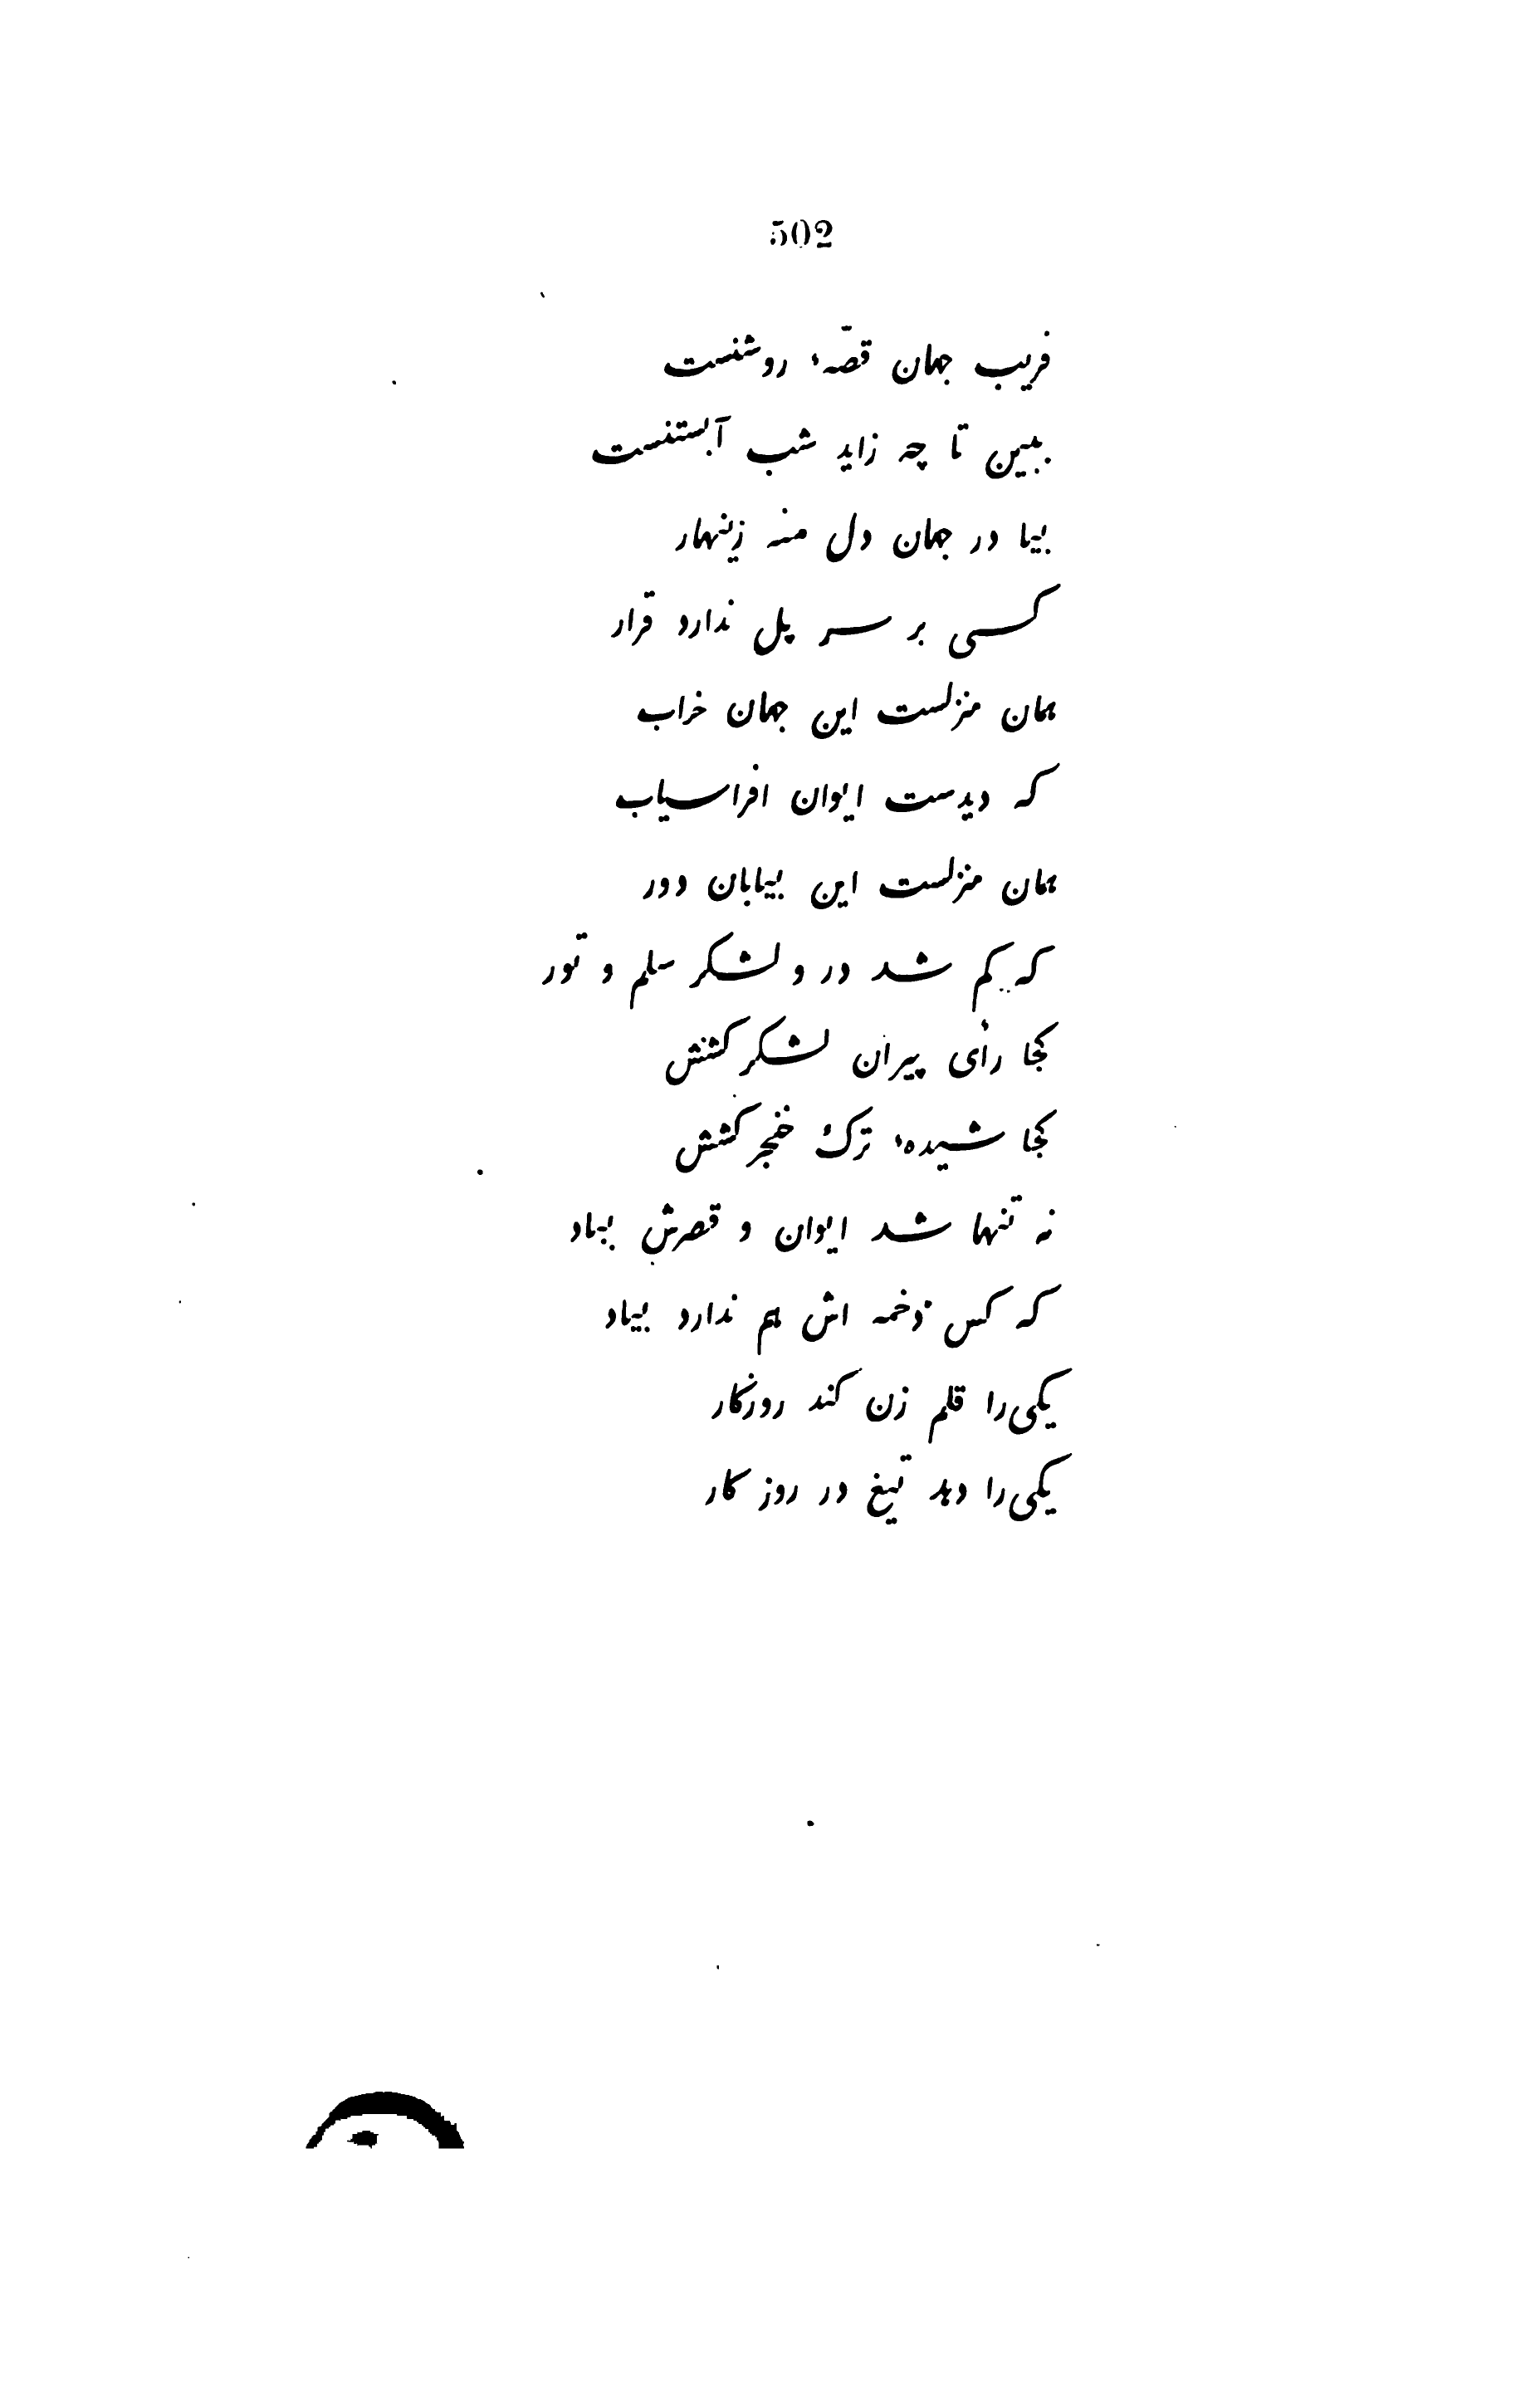 502
فریب جهان قصّهٔ روشنست
ببین تا چه زاید شب آبستنست
بیا در جهان دل منه زینهار
کسی بر سر پل ندارد قرار
همان منزلست این جهان خراب
که دیدست ایوان افراسیاب
همان منزلست این بیابان دور
که کم شد در و لشکر سلم و تور
کجا رأی پیران لشکر کشش
کجا شیدهٔ ترک خنجر کشش
نه تنها شد ایوان و قصرش بباد
که کس دخمه اش هم ندارد بیاد
یکی را قلم زن کند روزکار
یکی را دهد تیغ در روز کار